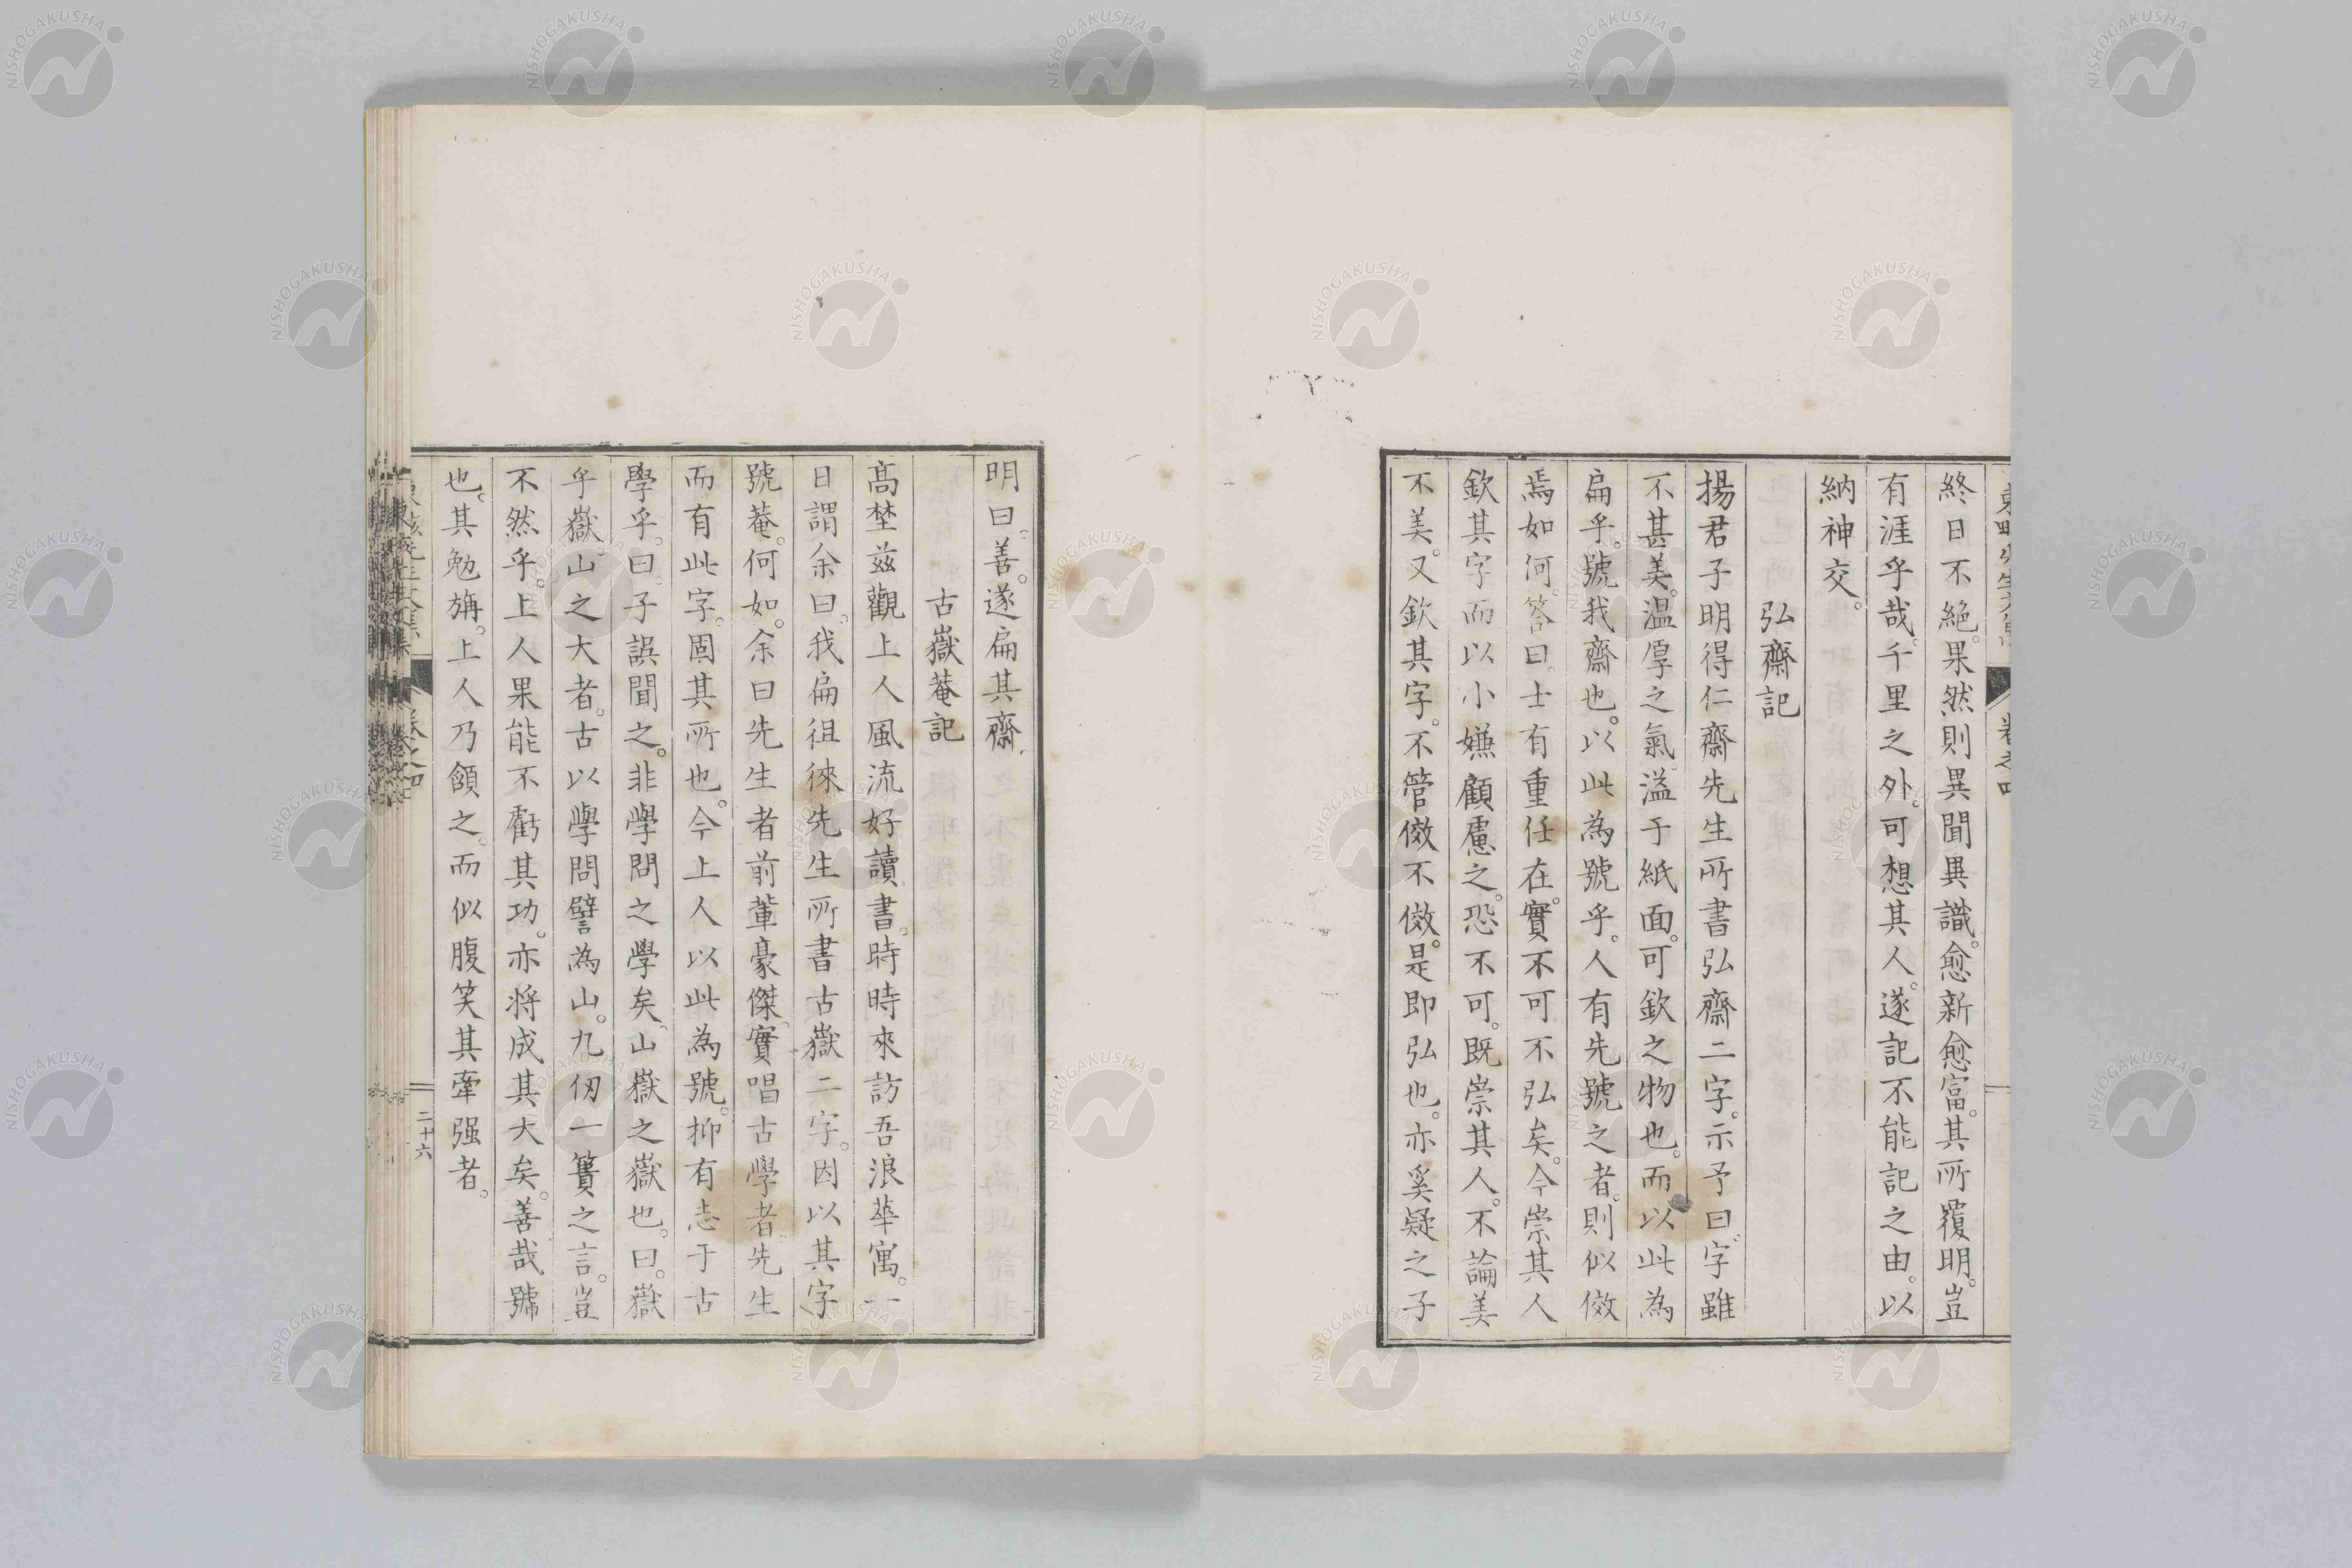 終日不絕。果然則異聞異識。愈新愈富。其所覆明。豈
有涯乎哉。千里之外。可想其人。遂記不能記之由。以
納神交。
弘齋記
揚君子明得仁齋先生所書弘齋二字。示予曰。字雖
不甚美。温厚之氣。溢于紙面。可欽之物也。而以此為
扁乎。號我齋也。以此為號乎。人有先號之者。則似傚
焉如何。答曰。士有重任在。實不可不弘矣。今崇其人
欽其字而以小嫌顧慮之。恐不可。既崇其人。不論美
不美。又欽其字。不管傚不傚。是即弘也。亦奚疑之子
明曰。善。遂扁其齋。
古嶽菴記
髙埜兹觀上人風流好讀書。時時來訪吾浪華寓。一
日謂余曰。我扁徂徠先生所書古嶽二字。因以其字
號菴。何如。余曰先生者前輩豪傑。實唱古學者。先生
而有此字。固其所也。今上人以此為號。抑有志于古
學乎。曰。子誤聞之。非學問之學矣。山嶽之嶽也。曰。嶽
乎嶽。山之大者。古以學問譬為山。九仞一簣之言。豈
不然乎。上人果能不虧其功。亦將成其大矣。善哉號
也。其勉旃。上人乃頷之。而似腹笑其牽强者。
卷之四
二十六